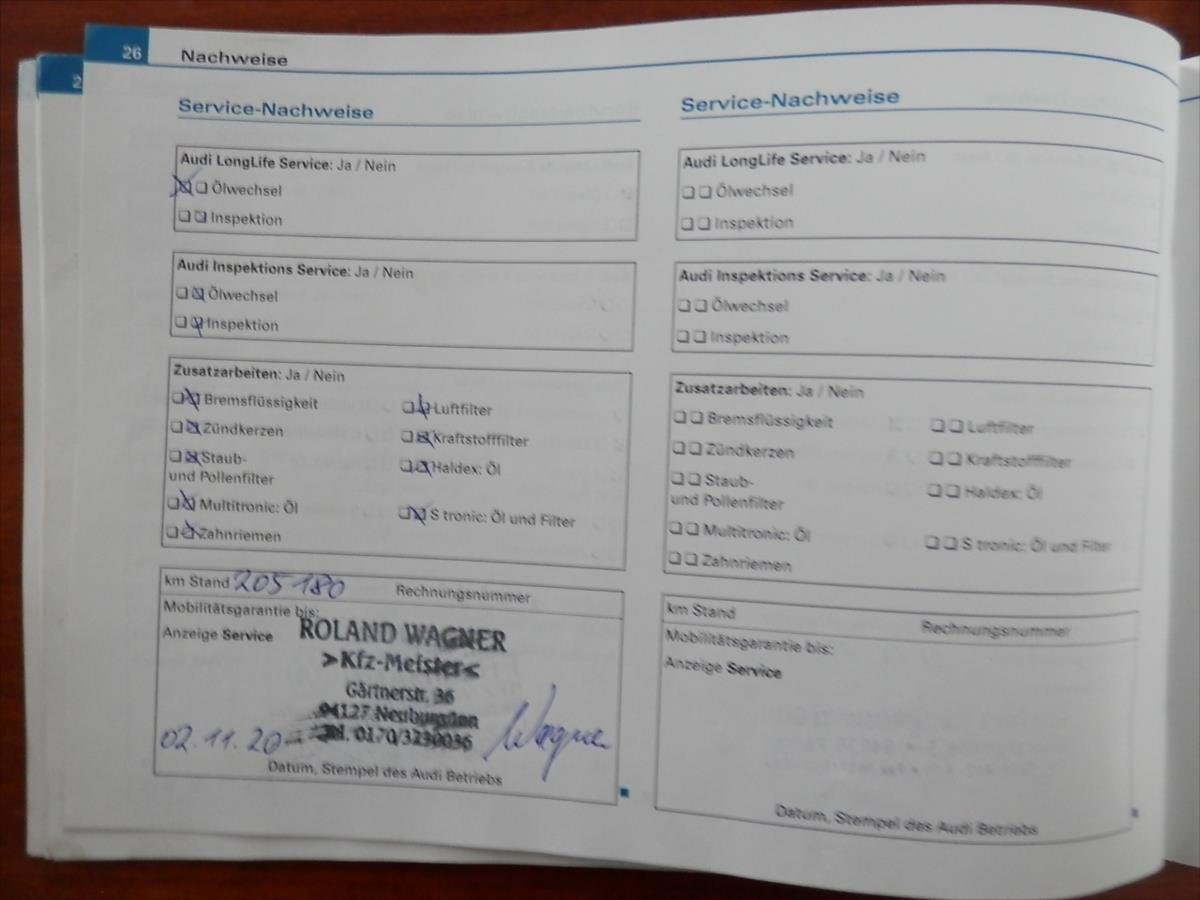 26 Nachweise
2
Service-Nachweise
Audi LongLife Service: Ja / Nein
Ölwechsel
Inspektion
Audi Inspektions Service: Ja / Nein
Ölwechsel
Inspektion
Zusatzarbeiten: Ja / Nein
Bremsflüssigkeit Luftfilter
Zündkerzen Kraftstofffilter
Staub- Haldex: Öl
und Pollenfilter
Multitronic: Öl S tronic: Öl und Filter
Zahnriemen
km Stand 205180 Rechnungsnummer
Mobilitätsgarantie bis:
Anzeige Service
ROLAND WAGNER
>Kfz-Meister<
Gärtnerstr. 36
94127 Neuburg/Inn
Tel. 0170/3230036
02.11.20 Wagner
Datum, Stempel des Audi Betriebs
Service-Nachweise
Audi LongLife Service: Ja / Nein
Ölwechsel
Inspektion
Audi Inspektions Service: Ja / Nein
Ölwechsel
Inspektion
Zusatzarbeiten: Ja / Nein
Bremsflüssigkeit Luftfilter
Zündkerzen Kraftstofffilter
Staub- Haldex: Öl
und Pollenfilter
Multitronic: Öl S tronic: Öl und Filter
Zahnriemen
km Stand Rechnungsnummer
Mobilitätsgarantie bis:
Anzeige Service
Datum, Stempel des Audi Betriebs